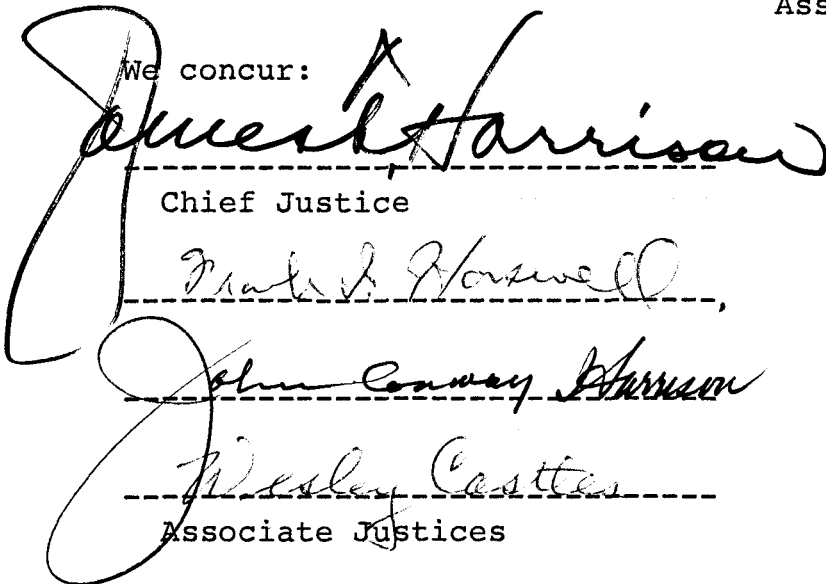 Ass
We concur:
James T. Harrison
Chief Justice
Frank I. Haswell
John Conway Harrison
Wesley Castles
Associate Justices